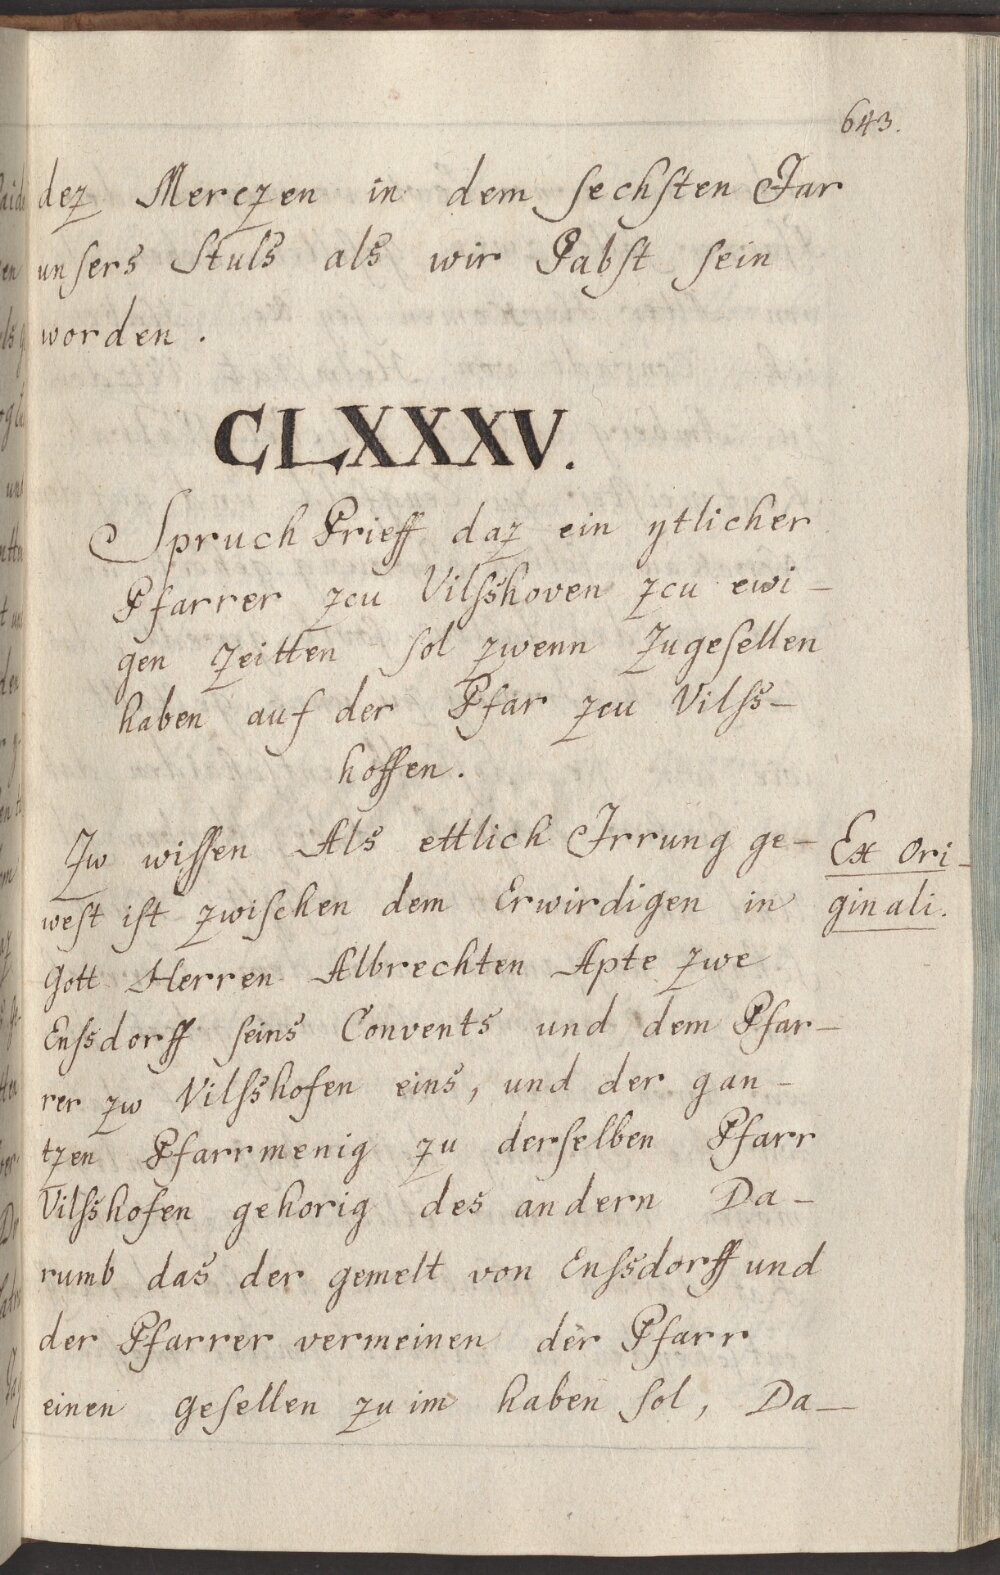 643.
dez Merczen in dem sechsten Jar
unsers Stuls als wir Pabst sein
worden.
CLXXXV.
Spruch Prieff daz ein ytlicher
Pfarrer zcu Vilsshoven zcu ewi-
gen Zeitten sol zwenn Zugesellen
haben auf der Pfar zcu Vilss-
hoffen.
Zw wissen Als ettlich Irrung ge-
west ist zwischen dem Erwirdigen in
Gott Herren Albrechten Apte zwe
Enssdorff seins Convents und dem Pfar-
rer zw Vilsshofen eins, und der gan-
tzen Pfarrmenig zu derselben Pfarr
Vilsshofen gehorig des andern Da-
rumb das der gemelt von Enssdorff und
der Pfarrer vermeinen der Pfarr
einen gesellen zu im haben sol, Da-
Ex Ori-
ginali.